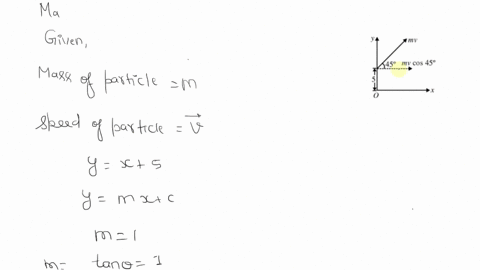 Ma
Given,
Mass of particle = m
Speed of particle = v⃗
y = x + 5
y = mx + c
m = 1
m = tanθ = 1
y
mv
45°
mv cos 45°
5
O
x